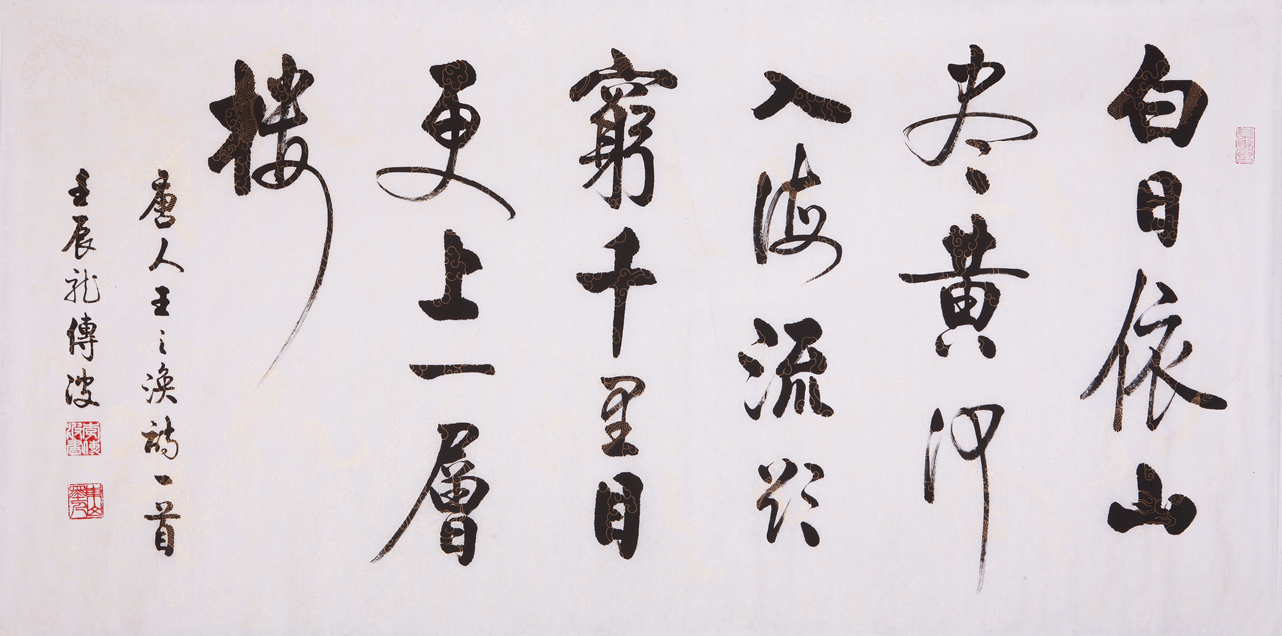 白日依山
尽黄河
入海流欲
窮千里目
更上一層
楼
唐人王之渙詩一首
壬辰龙傳波